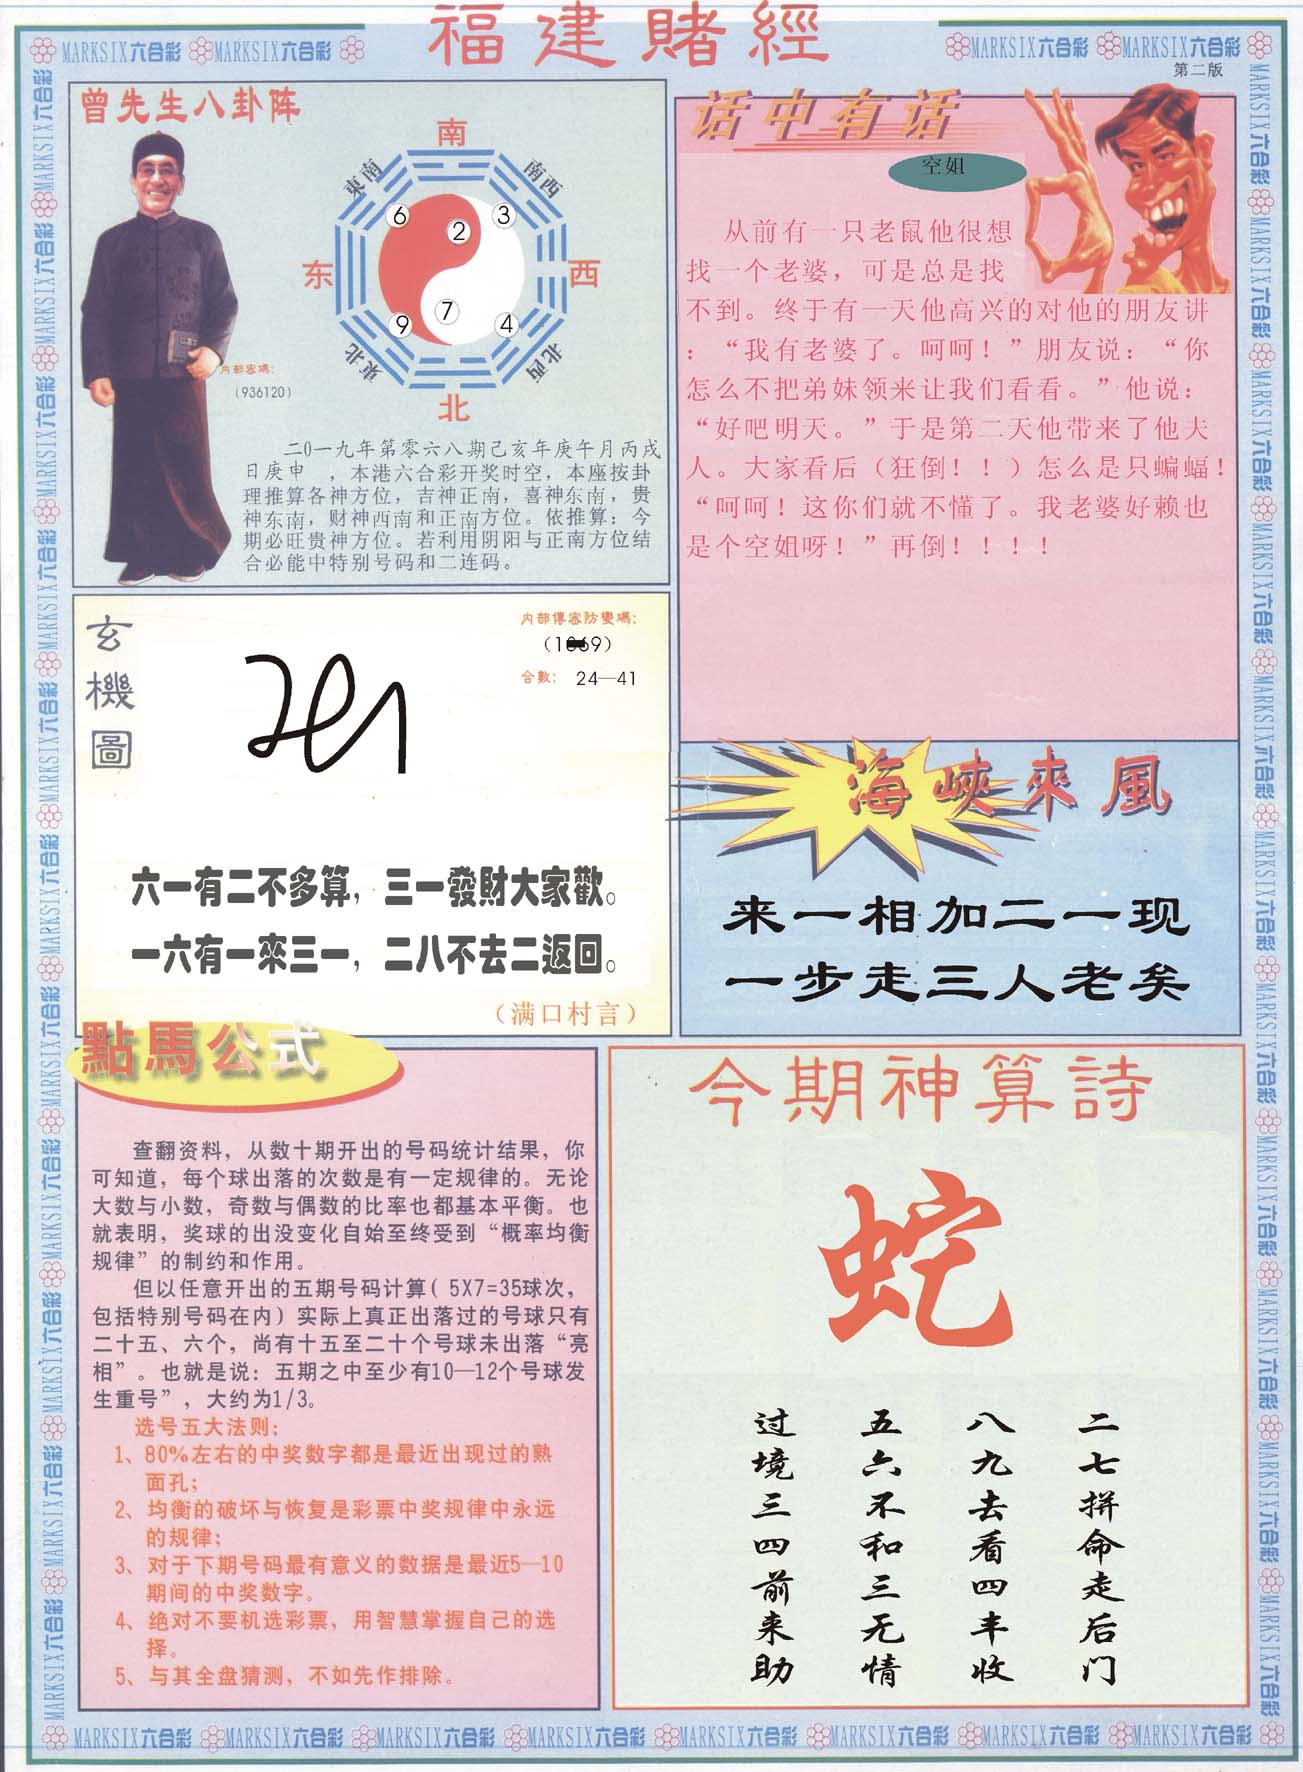 福建賭經
MARKSIX六合彩 MARKSIX六合彩
MARKSIX六合彩 MARKSIX六合彩
第二版
曾先生八卦阵
南
東南
南西
6
2
3
东
西
9
7
4
東北
北西
北
内部密碼:
(936120)
二0一九年第零六八期己亥年庚午月丙戌
日庚申 ,本港六合彩开奖时空,本座按卦
理推算各神方位,吉神正南,喜神东南,贵
神东南,财神西南和正南方位。依推算:今
期必旺贵神方位。若利用阴阳与正南方位结
合必能中特别号码和二连码。
话中有话
空姐
从前有一只老鼠他很想
找一个老婆,可是总是找
不到。终于有一天他高兴的对他的朋友讲
:“我有老婆了。呵呵!”朋友说:“你
怎么不把弟妹领来让我们看看。”他说:
“好吧明天。”于是第二天他带来了他夫
人。大家看后(狂倒!!)怎么是只蝙蝠!
“呵呵!这你们就不懂了。我老婆好赖也
是个空姐呀!”再倒!!!!
玄機圖
内部傳密防變碼:
合數: 24—41
六一有二不多算,三一發財大家歡。
一六有一來三一,二八不去二返回。
(满口村言)
海峽來風
来一相加二一现
一步走三人老矣
點馬公式
查翻资料,从数十期开出的号码统计结果,你
可知道,每个球出落的次数是有一定规律的。无论
大数与小数,奇数与偶数的比率也都基本平衡。也
就表明,奖球的出没变化自始至终受到“概率均衡
规律”的制约和作用。
但以任意开出的五期号码计算( 5X7=35球次,
包括特别号码在内)实际上真正出落过的号球只有
二十五、六个,尚有十五至二十个号球未出落“亮
相”。也就是说:五期之中至少有10—12个号球发
生重号”,大约为1/3。
选号五大法则:
1、80%左右的中奖数字都是最近出现过的熟
面孔;
2、均衡的破坏与恢复是彩票中奖规律中永远
的规律;
3、对于下期号码最有意义的数据是最近5—10
期间的中奖数字。
4、绝对不要机选彩票,用智慧掌握自己的选
择。
5、与其全盘猜测,不如先作排除。
今期神算詩
蛇
二七拼命走后门
八九去看四丰收
五六不和三无情
过境三四前来助
MARKSIX六合彩 MARKSIX六合彩 MARKSIX六合彩 MARKSIX六合彩 MARKSIX六合彩 MARKSIX六合彩 MARKSIX六合彩 MARKSIX六合彩